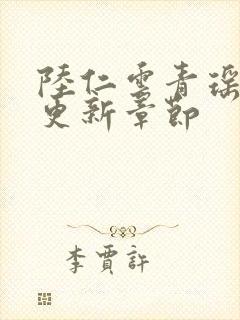 陸仁雲青瑶
更新章節
李賈許